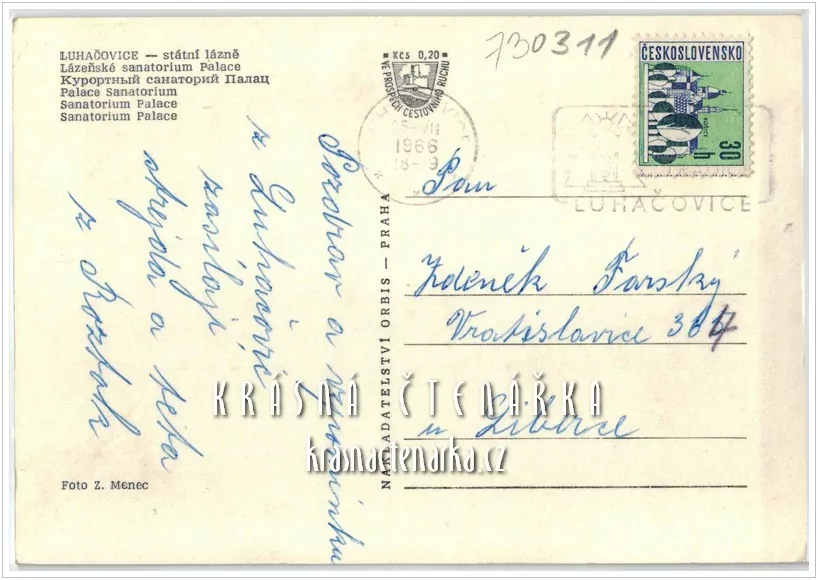 LUHAČOVICE — státní lázně
Lázeňské sanatorium Palace
Курортный санаторий Палац
Palace Sanatorium
Sanatorium Palace
Sanatorium Palace
Kčs 0,20
VE PROSPĚCH CESTOVNÍHO RUCHU
730311
ČESKOSLOVENSKO
KOŠICE
30 h
25.VII
1966
18-19
LUHAČOVICE
Pozdrav a vzpomínku
z Luhačovic
zasílají
strejda a teta
z Roztok
NAKLADATELSTVÍ ORBIS — PRAHA
Pan
Zdeněk Farský
Vratislavice 367
u Liberce
KRÁSNÁ ČTENÁŘKA
krasnactenarka.cz
Foto Z. Menec